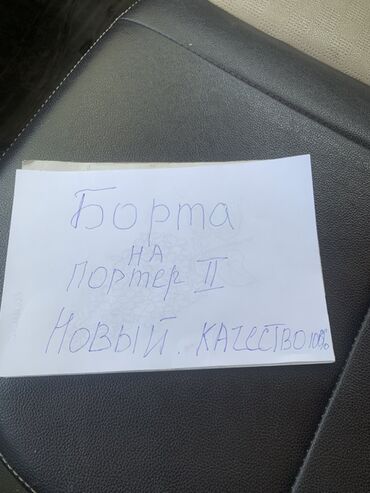 Борта
на
Портер II
Новый. качество 100%